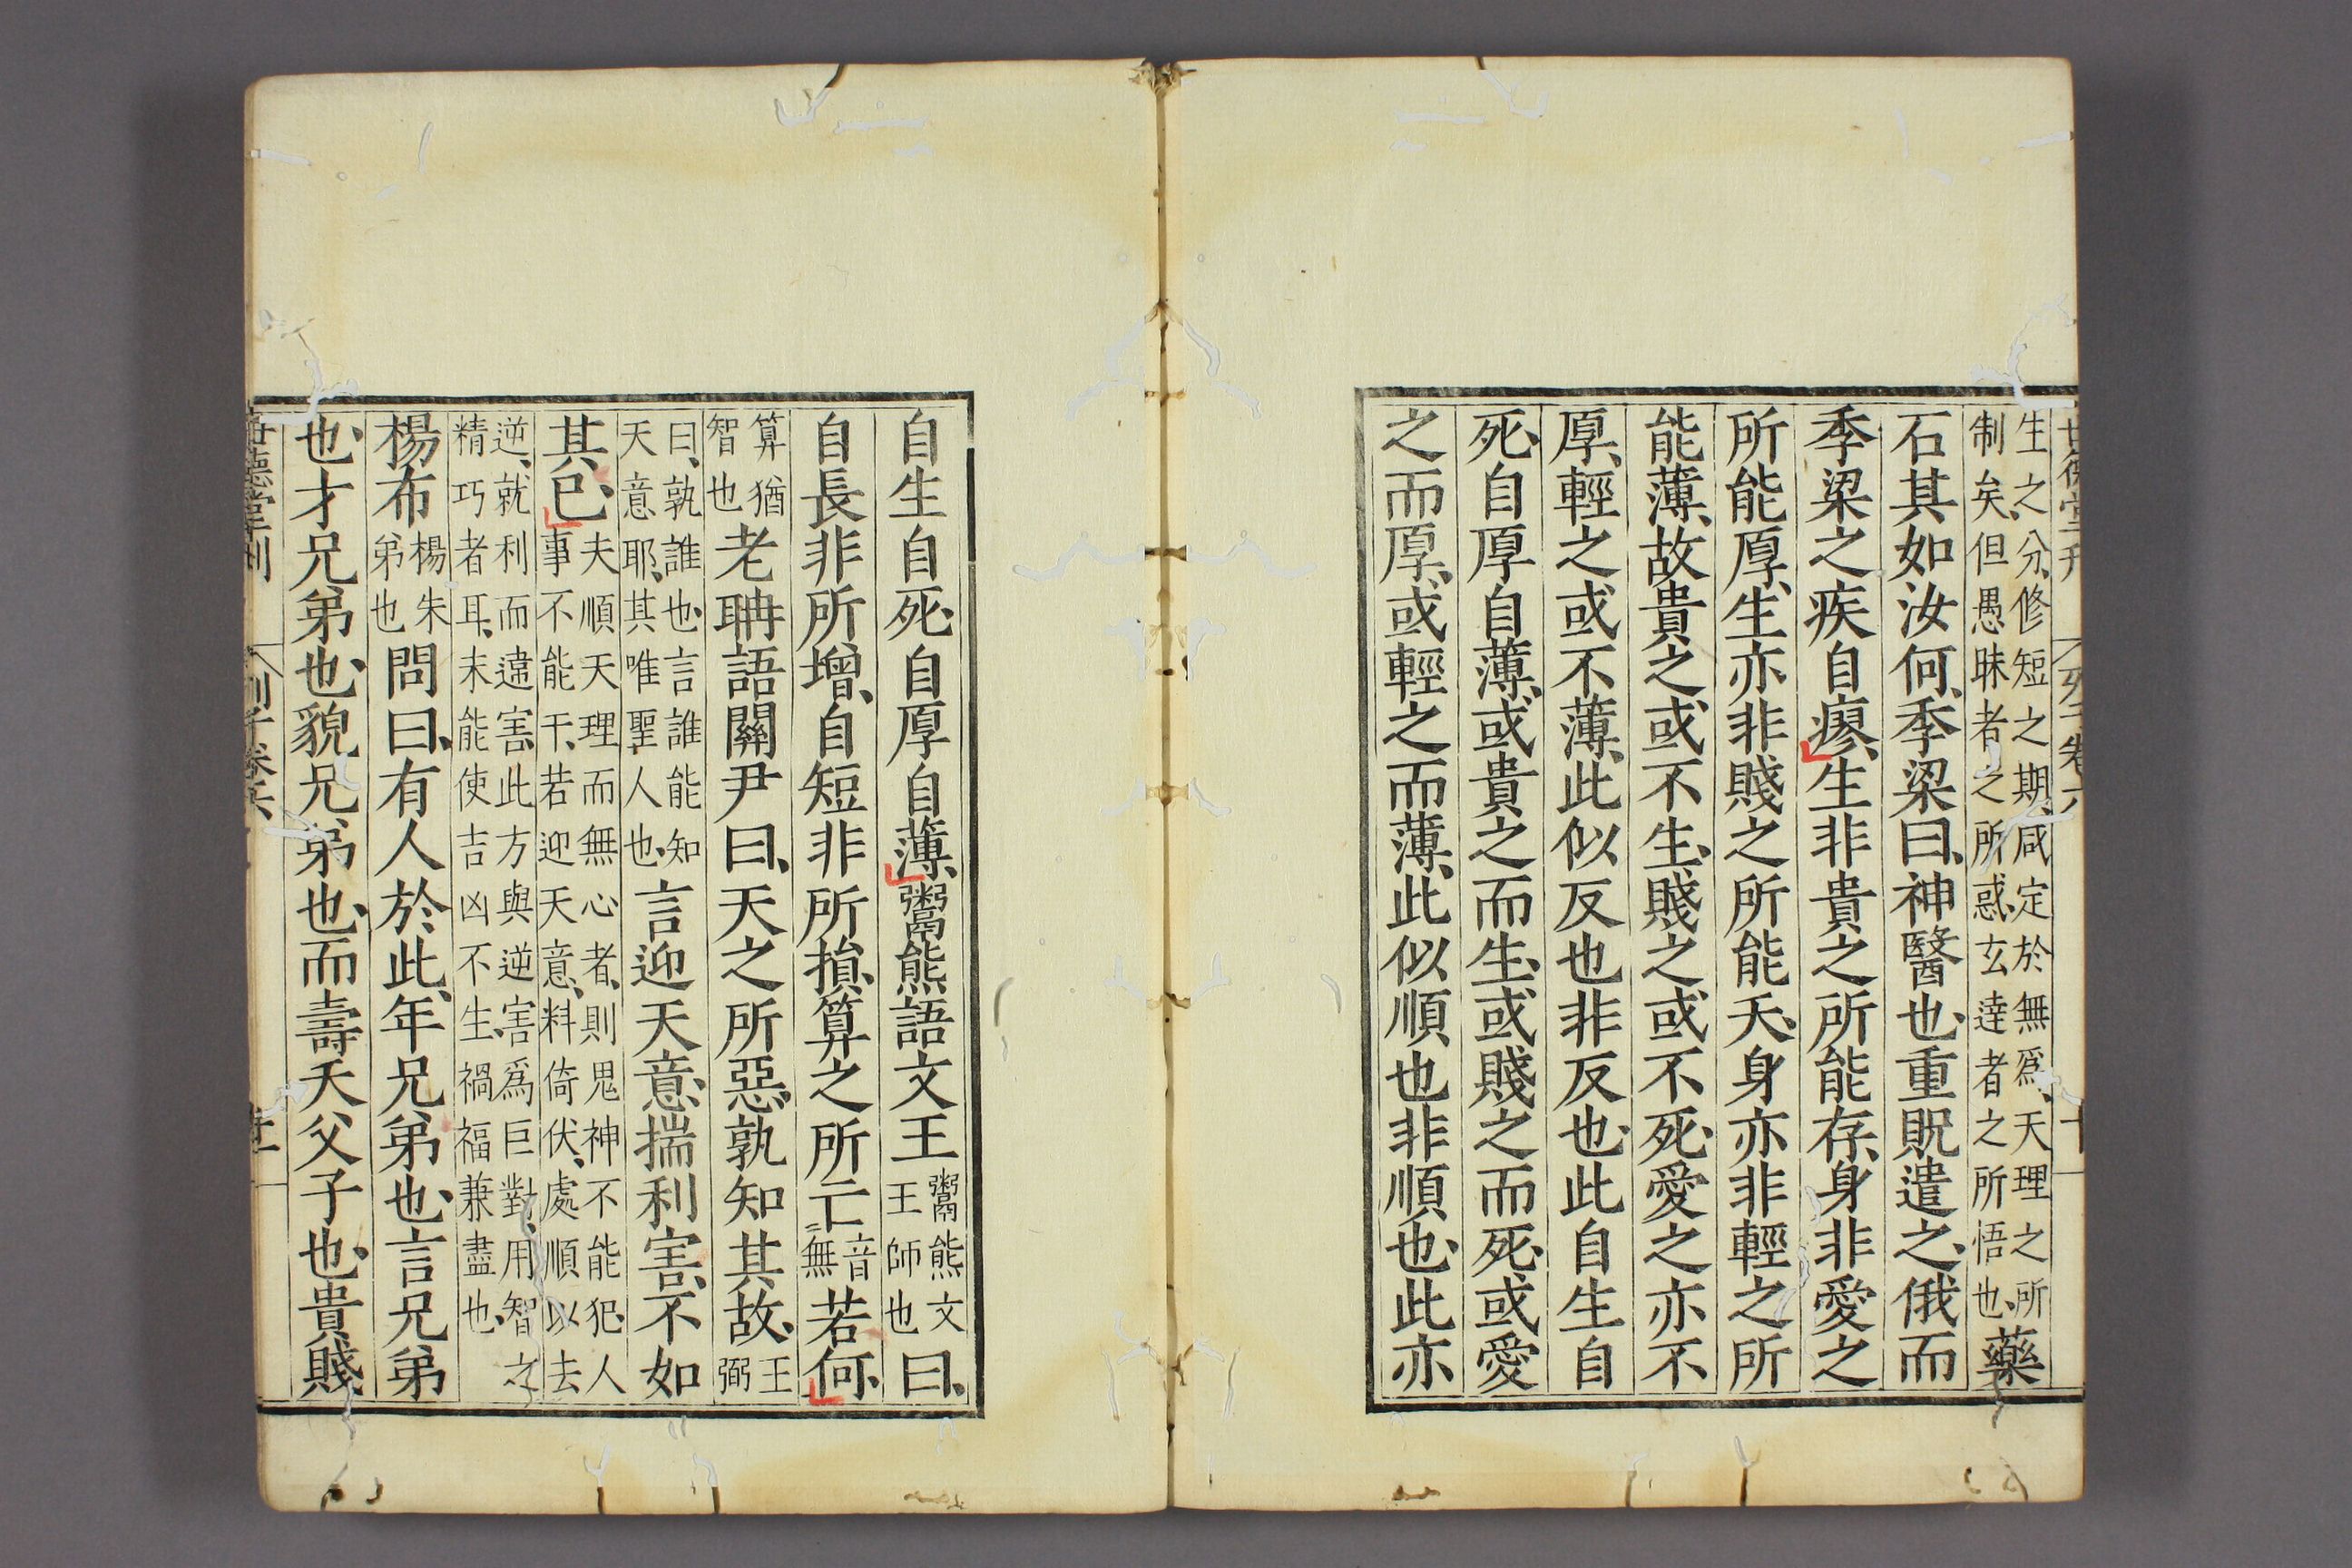 生之分、修短之期、咸定於無爲、天理之所
制矣、但愚昧者之所惑、玄達者之所悟也、藥
石其如汝何、季梁曰、神醫也、重貺遣之、俄而
季梁之疾自瘳、生非貴之所能存、身非愛之
所能厚、生亦非賤之所能夭、身亦非輕之所
能薄、故貴之或不生、賤之或不死、愛之亦不
厚、輕之或不薄、此似反也非反也、此自生自
死、自厚自薄、或貴之而生、或賤之而死、或愛
之而厚、或輕之而薄、此似順也非順也、此亦
自生自死、自厚自薄、鬻熊語文王鬻熊文
王師也曰、
自長非所增、自短非所損、算之所亡音
無若何、
算猶
智也老聃語關尹曰、天之所惡、孰知其故、王
弼
曰、孰誰也、言誰能知
天意耶、其唯聖人也、言迎天意、揣利害、不如
其已、夫順天理而無心者、則鬼神不能犯、人
事不能干、若迎天意、料倚伏、處順以去
逆、就利而違害、此方與逆害爲巨對、用智之
精巧者耳、未能使吉凶不生、禍福兼盡也、
楊布楊朱
弟也問曰、有人於此、年兄弟也、言兄弟
也、才兄弟也、貌兄弟也、而壽夭父子也、貴賤
世德堂刊
列子卷六